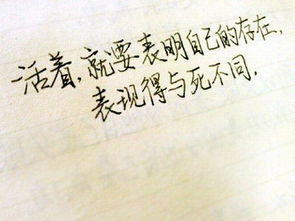 活着,就要表明自己的存在,
表现得与死不同.